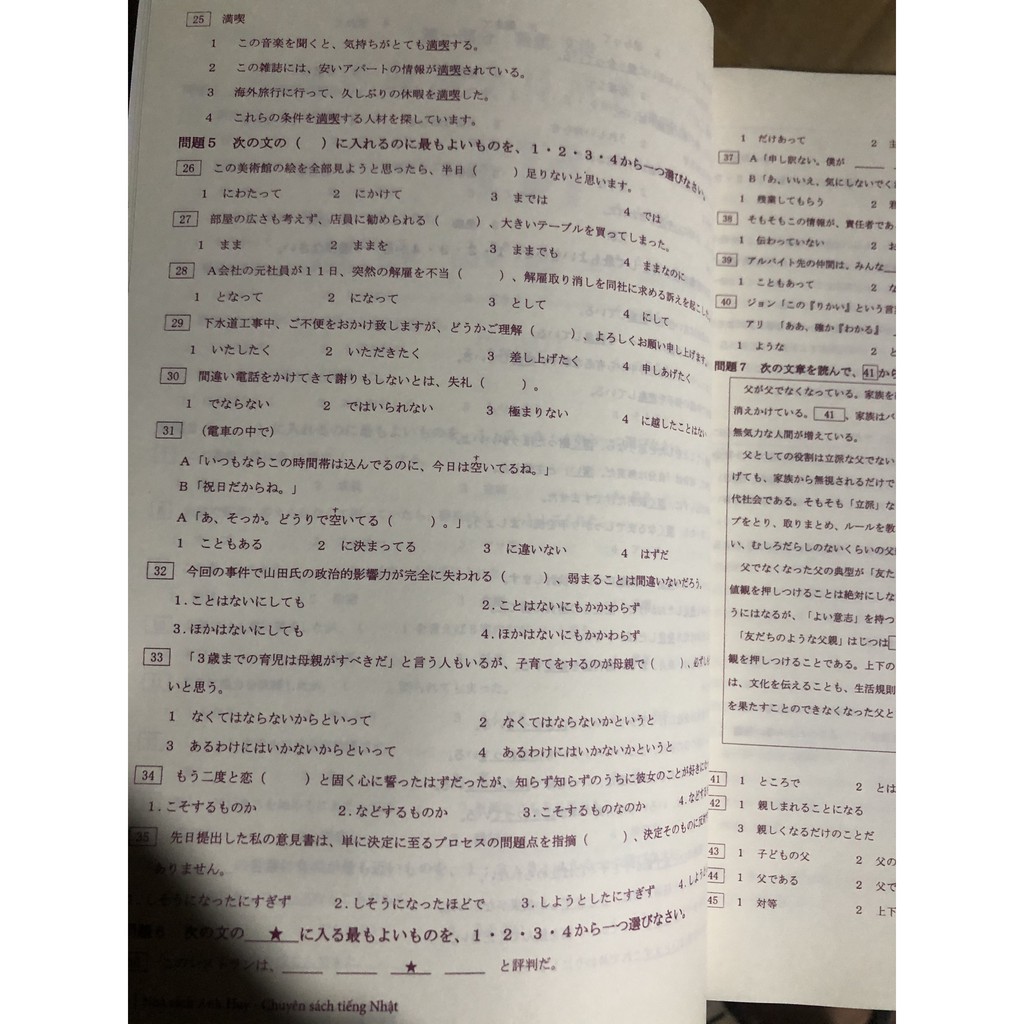 25 満喫
1 この音楽を聞くと、気持ちがとても満喫する。
2 この雑誌には、安いアパートの情報が満喫されている。
3 海外旅行に行って、久しぶりの休暇を満喫した。
4 これらの条件を満喫する人材を探しています。
問題5 次の文の（ ）に入れるのに最もよいものを、1・2・3・4から一つ選びなさい。
26 この美術館の絵を全部見ようと思ったら、半日（ ）足りないと思います。
1 にわたって 2 にかけて 3 までは 4 では
27 部屋の広さも考えず、店員に勧められる（ ）、大きいテーブルを買ってしまった。
1 まま 2 ままを 3 ままでも 4 ままなのに
28 A会社の元社員が11日、突然の解雇を不当（ ）、解雇取り消しを同社に求める訴えを起こした
1 となって 2 になって 3 として 4 にして
29 下水道工事中、ご不便をおかけ致しますが、どうかご理解（ ）、よろしくお願い申し上げます。
1 いたしたく 2 いただきたく 3 差し上げたく 4 申しあげたく
30 間違い電話をかけてきて謝りもしないとは、失礼（ ）。
1 でならない 2 ではいられない 3 極まりない 4 に越したことはない
31 （電車の中で）
A「いつもならこの時間帯は込んでるのに、今日は空いてるね。」
B「祝日だからね。」
A「あ、そっか。どうりで空いてる（ ）。」
1 こともある 2 に決まってる 3 に違いない 4 はずだ
32 今回の事件で山田氏の政治的影響力が完全に失われる（ ）、弱まることは間違いないだろう。
1.ことはないにしても 2.ことはないにもかかわらず
3.ほかはないにしても 4.ほかはないにもかかわらず
33 「3歳までの育児は母親がすべきだ」と言う人もいるが、子育てをするのが母親で（ ）、必ずし
いと思う。
1 なくてはならないからといって 2 なくてはならないかというと
3 あるわけにはいかないからといって 4 あるわけにはいかないかというと
34 もう二度と恋（ ）と固く心に誓ったはずだったが、知らず知らずのうちに彼女のことが好きに
1.こそするものか 2.などするものか 3.こそするものなのか 4.など
35 先日提出した私の意見書は、単に決定に至るプロセスの問題点を指摘（ ）、決定そのものに
ありません。
しそうになったにすぎず 2.しそうになったほどで 3.しようとしたにすぎず 4.しよう
問題6 次の文の ★ に入る最もよいものを、1・2・3・4から一つ選びなさい。
このレストランは、 ★ と評判だ。
Chuyên sách tiếng Nhật
1 だけあって 2
37 A「申し訳ない。僕が
B「あ、いいえ、気にしないでく
1 残業してもらう 2
38 そもそもこの情報が、責任者であ
1 伝わっていない 2
39 アルバイト先の仲間は、みんな
1 こともあって 2
40 ジョン「この『りかい』という言
アリ 「ああ、確か『わかる』
1 ような 2
問題7 次の文章を読んで、41から
父が父でなくなっている。家族を
消えかけている。41、家族はバ
無気力な人間が増えている。
父としての役割は立派な父でない
げても、家族から無視されるだけで
代社会である。そもそも「立派」な
プをとり、取りまとめ、ルールを教
い、むしろだらしのないくらいの父
父でなくなった父の典型が「友だ
値観を押しつけることは絶対にしな
うにはなるが、「よい意志」を持つ
「友だちのような父親」はじつは
観を押しつけることである。上下の
は、文化を伝えることも、生活規則
を果たすことのできなくなった父と
41 1 ところで 2 とは
42 1 親しまれることになる
3 親しくなるだけのことだ
43 1 子どもの父 2 父の
44 1 父である 2 父で
45 1 対等 2 上下